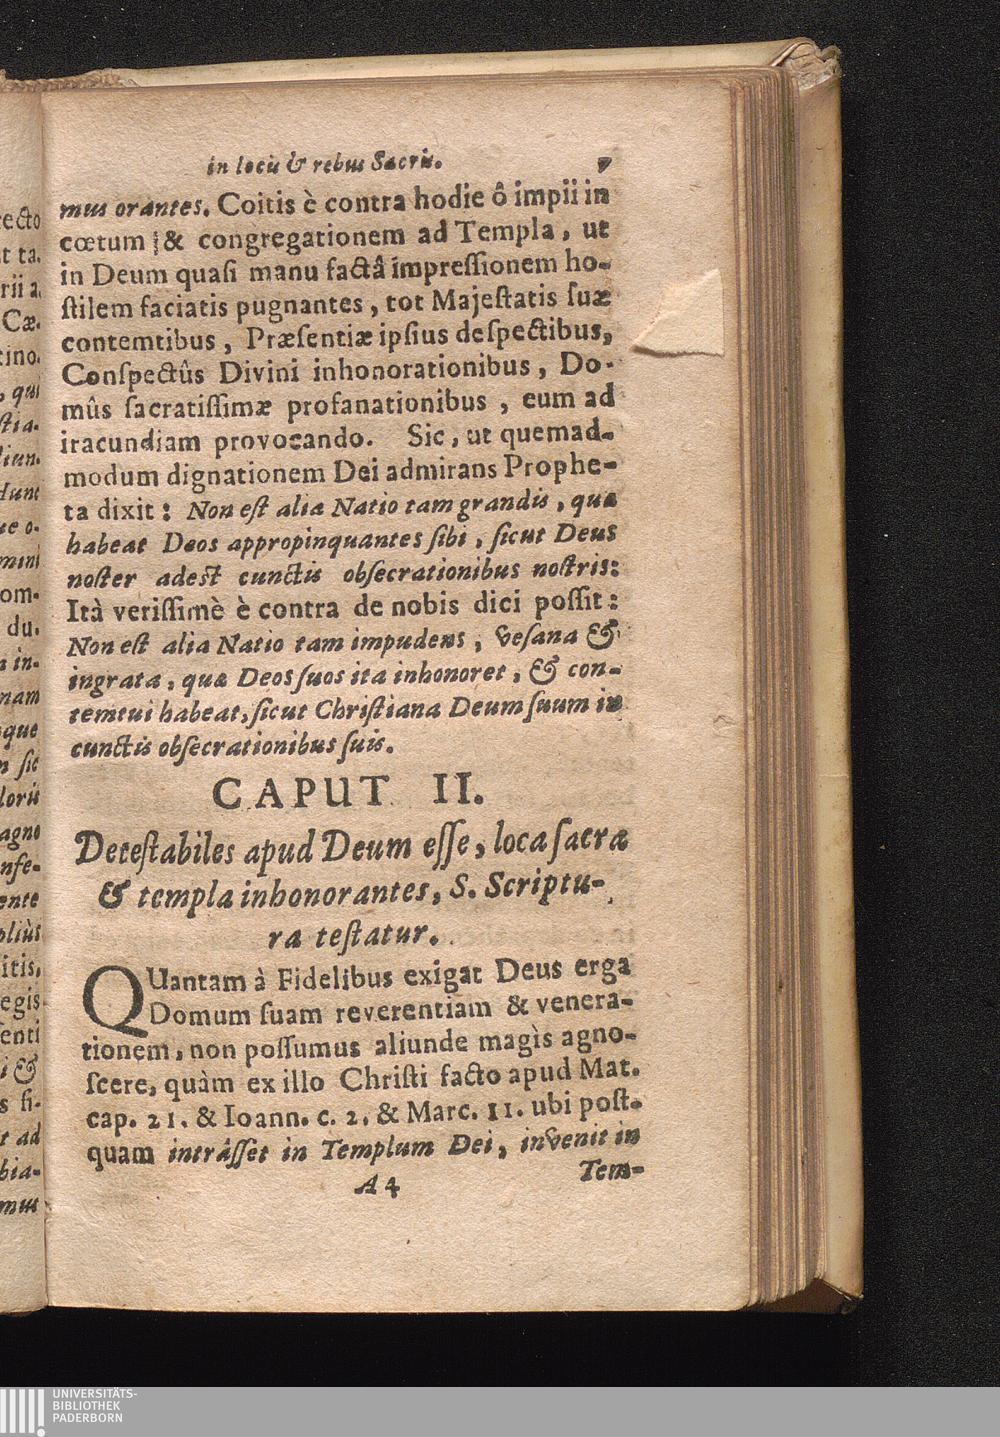 in locis & rebus Sacris. 7
mus orantes. Coitis è contra hodie ô impii in
cœtum & congregationem ad Templa, ut
in Deum quaſi manu factâ impreſſionem ho-
ſtilem faciatis pugnantes, tot Majeſtatis ſuæ
contemtibus, Præſentiæ ipſius deſpectibus,
Conſpectûs Divini inhonorationibus, Do-
mûs ſacratiſſimæ profanationibus, eum ad
iracundiam provocando. Sic, ut quemad-
modum dignationem Dei admirans Prophe-
ta dixit: Non eſt alia Natio tam grandis, quæ
habeat Deos appropinquantes ſibi, ſicut Deus
noſter adeſt cunctis obſecrationibus noſtris:
Ità veriſſimè è contra de nobis dici poſſit:
Non eſt alia Natio tam impudens, veſana &
ingrata, quæ Deos ſuos ita inhonoret, & con-
temtui habeat, ſicut Chriſtiana Deum ſuum in
cunctis obſecrationibus ſuis.
CAPUT II.
Deteſtabiles apud Deum eſſe, loca ſacra
& templa inhonorantes, S. Scriptu-
ra teſtatur.
QUantam à Fidelibus exigat Deus erga
Domum ſuam reverentiam & venera-
tionem, non poſſumus aliunde magìs agno-
ſcere, quàm ex illo Chriſti facto apud Mat.
cap. 21. & Ioann. c. 2. & Marc. 11. ubi poſt-
quam intrâſſet in Templum Dei, invenit in
A4 Tem-
ecto
t ta.
rii a
Cæ.
tino.
, qui
ſtia.
liun.
Hunc
ue o.
mini
om.
du.
a in.
nam
que
n ſic
loris
agno
nſe-
ente
pliùs
itis,
egis
enti
i &
s ſi.
t ad
bia-
mus
UNIVERSITÄTS-
BIBLIOTHEK
PADERBORN